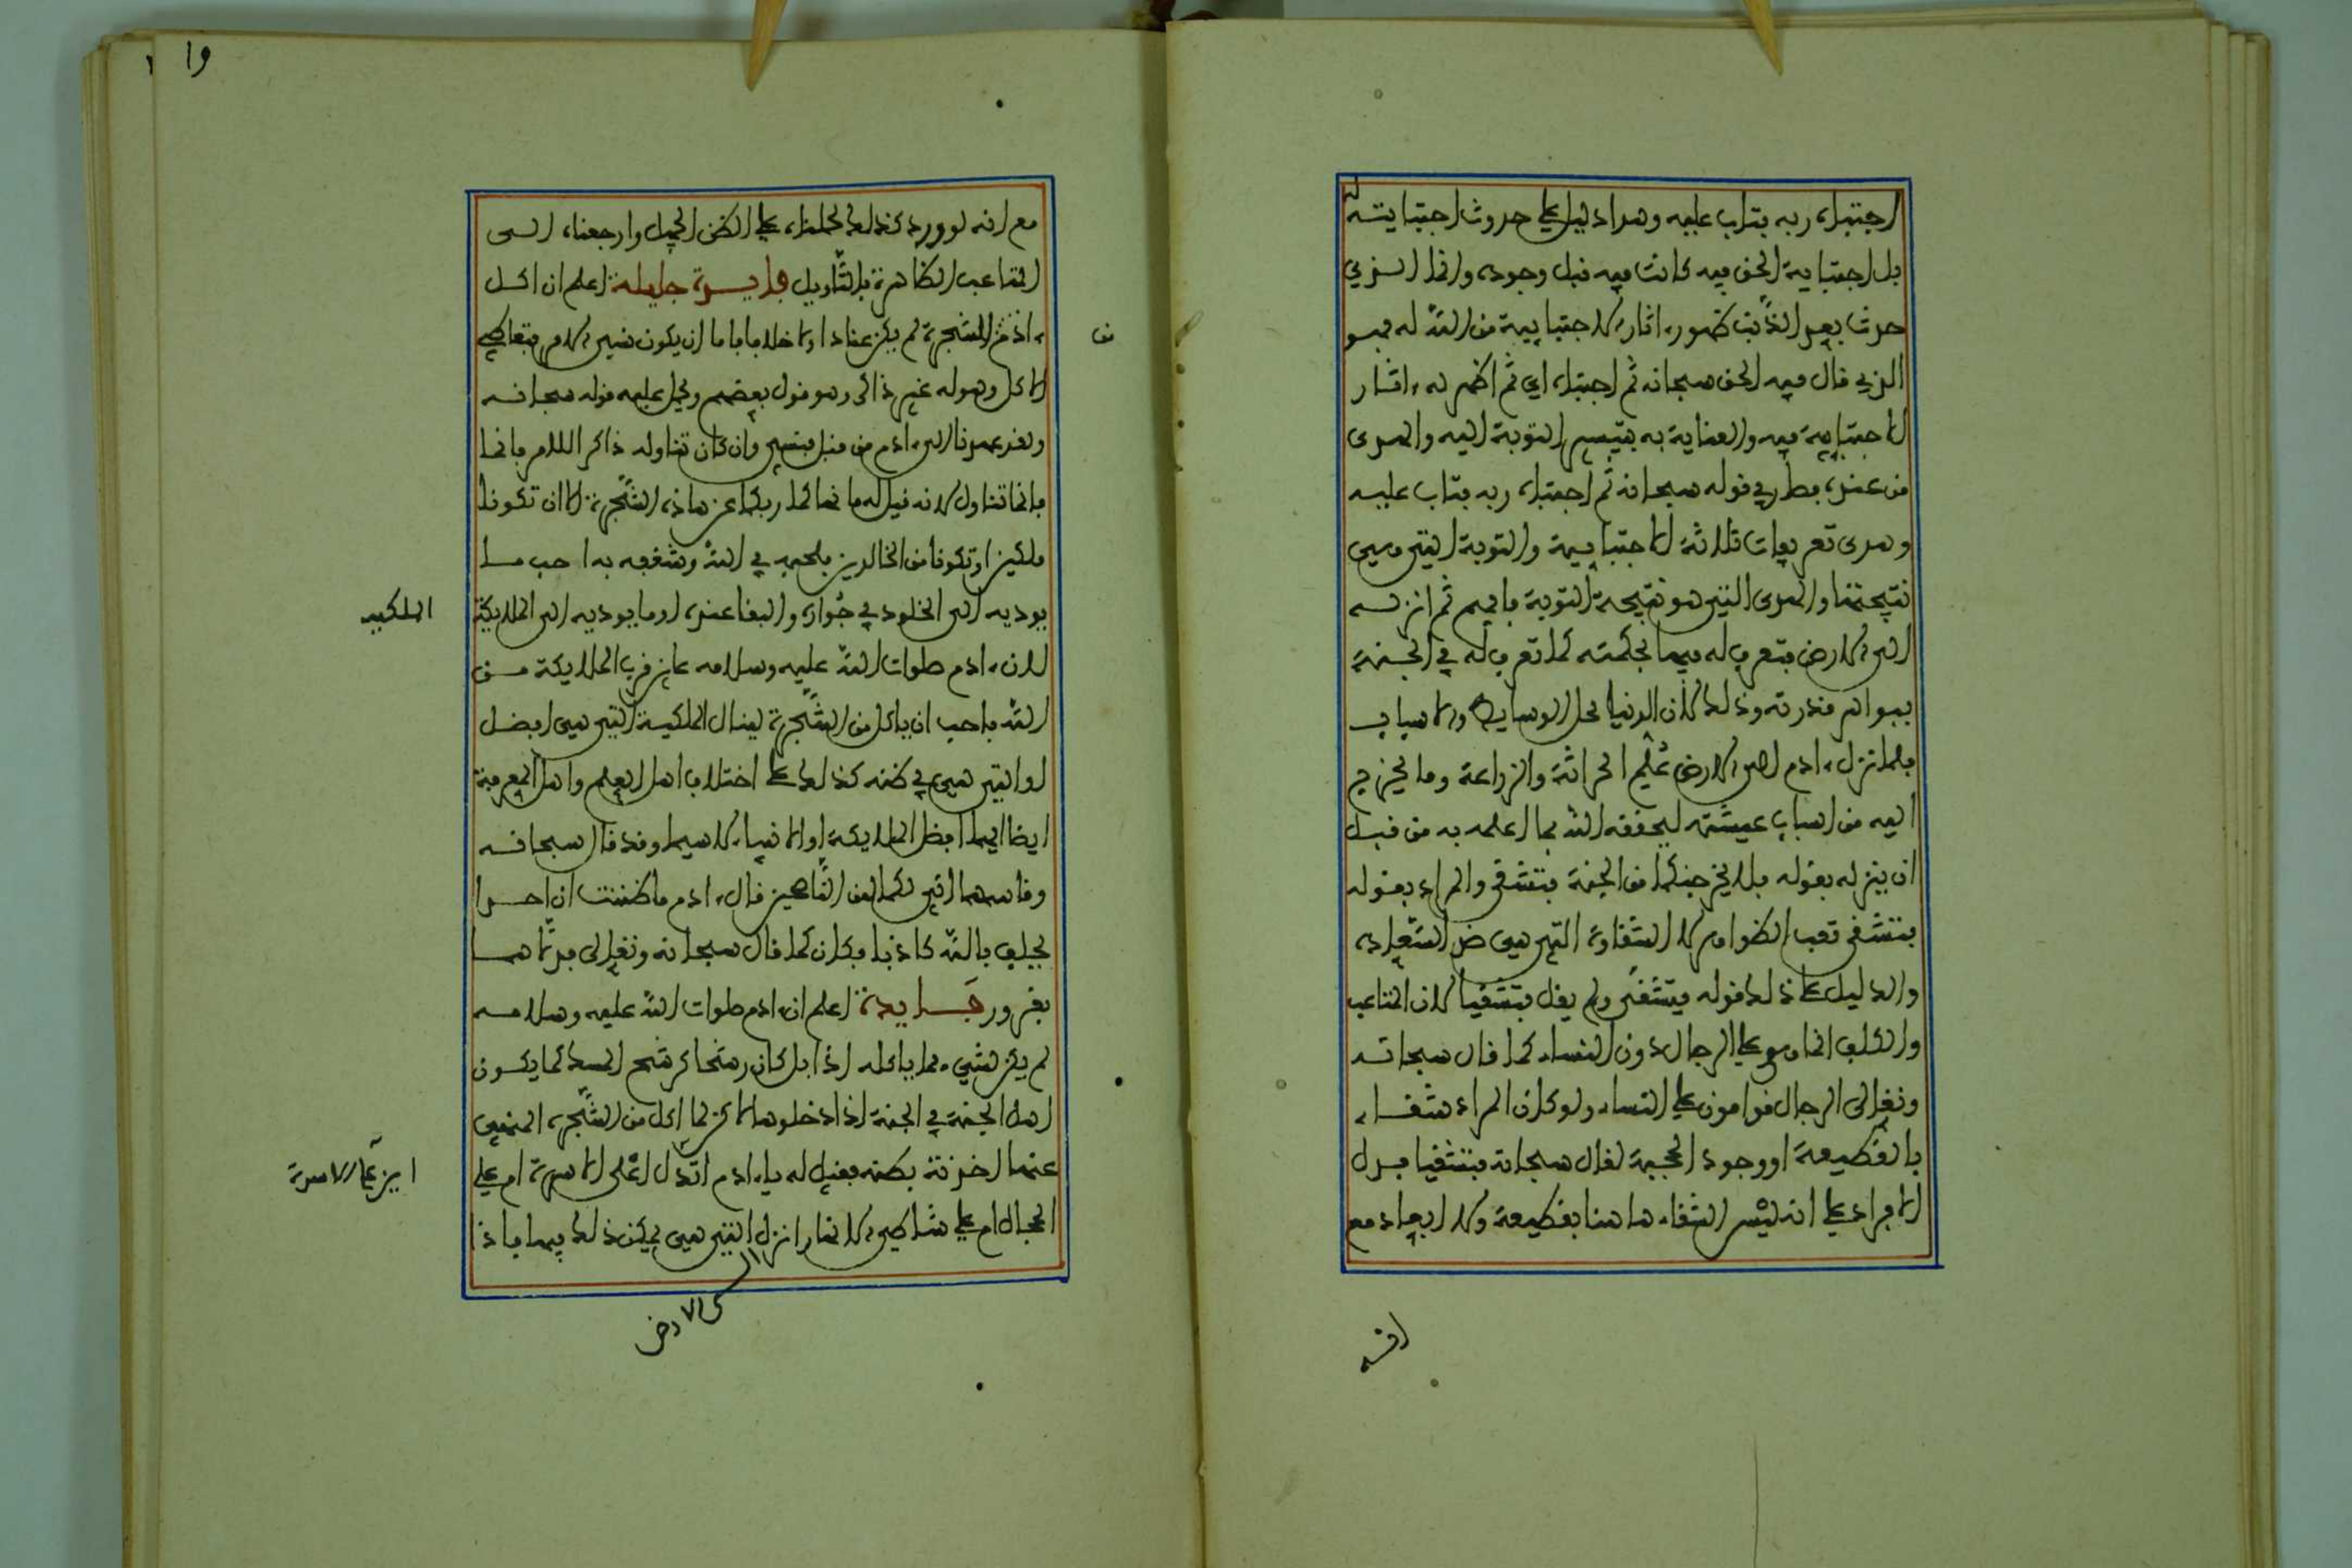 اجتباه ربه فتاب عليه وهدا دليل على حدوث اجتبايته له
بل اجتباية الحق فيه كانت فيه قبل وجوده وانما الذي
حدث بعد الذنب ظهور اثار الاجتبايية من الله له فهو
الذي قال فيه الحق سبحانه ثم اجتباه اي ثم اظهر له ءاثار
الاجتبايية فيه والعناية به بتيسير التوبة اليه والهدى
من عنده فصار في قوله سبحانه ثم اجتباه ربه فتاب عليه
وهدى تعريفات ثلاثة الاجتبايية والتوبة التي هي
نتيجتها والهدى الذي هو نتيجة التوبة فافهم ثم انزله
الى الارض فتعرف له فيها بحكمته كما تعرف له في الجنة
ببواهر قدرته وذلك لان الدنيا محل الوسايط والاسباب
فلما نزل ءادم الى الارض علم الحراثة والزراعة وما يحتاج
اليه من اسباب عيشته ليحققه الله بما اعلمه به من قبل
ان ينزله بقوله فلا يخرجنكما من الجنة فتشقى والمراد بقوله
فتشقى تعب الظواهر لا الشقاوة التي هي ضد السعادة
والدليل على ذلك قوله فتشقى ولم يقل فتشقيا لان المتاعب
والكلف انما هي على الرجال دون النساء كما قال سبحانه
وتعالى الرجال قوامون على النساء ولو كان المراد شقاء
بالقطيعة او وجود الحجبة لقال سبحانه فتشقيا فدل
الافراد على انه ليس الشقاء هاهنا بقطيعة ولا ابعاد مع
انه
١٩
مع انه لو ورد كذلك لحملناه على الظن الجميل وارجعناه الى
المتاعب الظاهرة بالتاويل فايدة جليلة اعلم ان اكل
ءادم للشجرة لم يكن عنادا ولا خلافا فاما ان يكون نسي الامر فتعاطى
الاكل وهو له غير ذاكر وهو قول بعضهم ويحمل عليه قوله سبحانه
ولقد عهدنا الى ءادم من قبل فنسي وان كان تناوله ذاكرا للامر فانما
فانما تناول لانه قيل له ما نهاكما ربكما عن هاذه الشجرة الا ان تكونا
ملكين او تكونا من الخالدين فلحبه في الله وشغفه به احب ما
يوديه الى الخلود في جواره والبقا عنده او ما يوديه الى الملايكة
الملكيه
لان ءادم صلوات الله عليه وسلامه عاين قرب الملايكة من
الله فاحب ان ياكل من الشجرة لينال الملكية التي هي افضل
او التي هي في ظنه كذلك على اختلاف اهل العلم واهل المعرفة
ايضا ايهما افضل الملايكة او الانبياء لا سيما وقد قال سبحانه
وقاسمهما اني لكما لمن الناصحين قال ءادم ما ظننت ان احدا
يحلف بالله كاذبا فكان كما قال سبحانه وتعالى فدلاهما
بغرور فايدة اعلم ان ءادم صلوات الله عليه وسلامه
لم يكن لشيء مما ياكله اذا بل كان رشحا كرشح المسك كما يكون
اهل الجنة في الجنة اذا دخلوها لاكن لما اكل من الشجرة المنهي
عنها اخذته بطنه فقيل له يا ءادم اتدل اعلى الاسرة ام على
اين على الاسرة
الحجال ام على شاطي الانهار انزل التي هي يمكن ذلك فيها فاذا
الى الارض